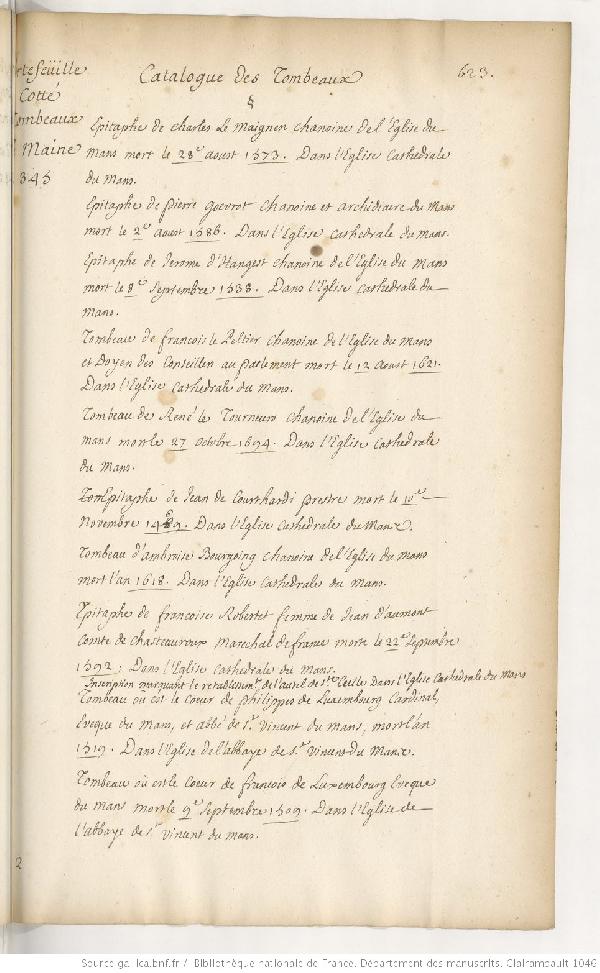 Catalogue des Tombeaux
623.
rtefeüille
Cotté
Tombeaux
Maine
345
§
Epitaphe de Charles Le Maignen chanoine de l'Eglise du
Mans mort le 28.e aoust 1573. Dans l'Eglise Cathedrale
du Mans.
Epitaphe de pierre chanoine et archidiacre du Mans
mort le 2.e aoust 1586. Dans l'Eglise Cathedrale du Mans.
Epitaphe de Jerome d'Hangest chanoine de l'Eglise du Mans
mort le 8.e Septembre 1538. Dans l'Eglise Cathedrale du
Mans.
Tombeau de francois le Peltier chanoine de l'Eglise du Mans
et Doyen des Conseillers au parlement mort le 12 Aoust 1621.
Dans l'Eglise Cathedrale du Mans.
Tombeau de René le Tourneurs chanoine de l'Eglise du
mans mort le 27 octobre 1694. Dans l'Eglise Cathedrale
du Mans.
Epitaphe de Jean de Courthardi prestre mort le
Novembre Dans l'Eglise Cathedrale du Mans.
Tombeau d'ambroise Bourgoing chanoine de l'Eglise du Mans
mort l'an 1618. Dans l'Eglise Cathedrale du Mans.
Epitaphe de francoise Robertet femme de Jean d'aumont
Comte de Chasteauroux Marechal de france morte le 22.e Septembre
1592; Dans l'Eglise Cathedrale du Mans.
Inscription marquant le de l'autel de S.te Cecille Dans l'Eglise Cathedrale du Mans
Tombeau où est le Coeur de philippes de Luxembourg Cardinal,
Eveque du Mans, et abbé de S.t Vincent du Mans, mort l'an
1519. Dans l'Eglise de l'abbaye de S.t Vincent du Mans.
Tombeau où est le Coeur de francois de Luxembourg Eveque
du Mans mort le 9.e Septembre 1509. Dans l'Eglise de
l'abbaye de S.t Vincent du Mans.
2
Source gallica.bnf.fr / Bibliothèque nationale de France. Département des manuscrits. Clairambault 1046